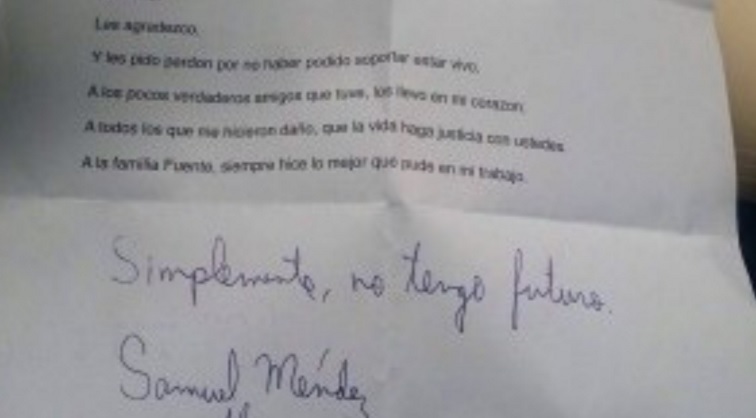 Les agradezco,
Y les pido perdon por no haber podido soportar estar vivo,
A los pocos verdaderos amigos que tuve, los llevo en mi corazon
A todos los que me hicieron daño, que la vida haga justicia con ustedes
A la familia Puento, siempre hice lo mejor que pude en mi trabajo.
Simplemente, no tengo futuro.
Samuel Méndez